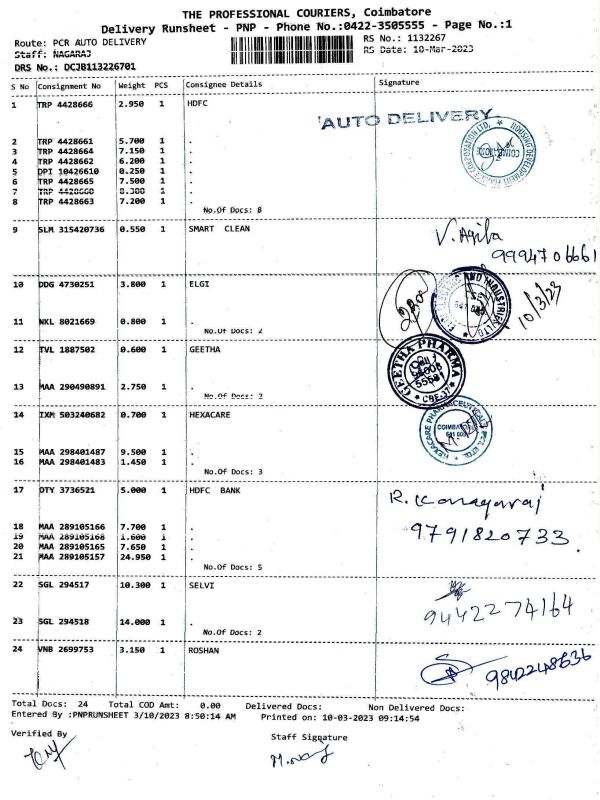 THE PROFESSIONAL COURIERS, Coimbatore
Delivery Runsheet - PNP - Phone No.:0422-3505555 - Page No.:1
Route: PCR AUTO DELIVERY
RS No.: 1132267
Staff: NAGARAJ
RS Date: 10-Mar-2023
DRS No.: DCJB113226701
S No Consignment No Weight PCS Consignee Details Signature
1 TRP 4428666 2.950 1 HDFC
AUTO DELIVERY
2 TRP 4428661 5.700 1 .
3 TRP 4428664 7.150 1 .
4 TRP 4428662 6.200 1 .
5 DPI 10426610 0.250 1 .
6 TRP 4428665 7.500 1 .
7 TRP 4428660 8.300 1 .
8 TRP 4428663 7.200 1 .
No.Of Docs: 8
9 SLM 315420736 0.550 1 SMART CLEAN
V. Agila
9994706661
10 DDG 4730251 3.800 1 ELGI
10/3/23
11 NKL 8021669 0.800 1 .
No.Of Docs: 2
12 TVL 1887502 0.600 1 GEETHA
GEETHA PHARMA
CBE-37
13 MAA 290490891 2.750 1 .
No.Of Docs: 2
14 IXM 503240682 0.700 1 HEXACARE
HEXACARE PHARMACEUTICALS PVT. LTD.
15 MAA 298401487 9.500 1 .
16 MAA 298401483 1.450 1 .
No.Of Docs: 3
17 OTY 3736521 5.000 1 HDFC BANK
R. Kanagaraj
9791820733
18 MAA 289105166 7.700 1 .
19 MAA 289105168 1.600 1 .
20 MAA 289105165 7.650 1 .
21 MAA 289105157 24.950 1 .
No.Of Docs: 5
22 SGL 294517 10.300 1 SELVI
9442274164
23 SGL 294518 14.000 1 .
No.Of Docs: 2
24 VNB 2699753 3.150 1 ROSHAN
9842248636
Total Docs: 24 Total COD Amt: 0.00 Delivered Docs: Non Delivered Docs:
Entered By :PNPRUNSHEET 3/10/2023 8:50:14 AM Printed on: 10-03-2023 09:14:54
Verified By Staff Signature